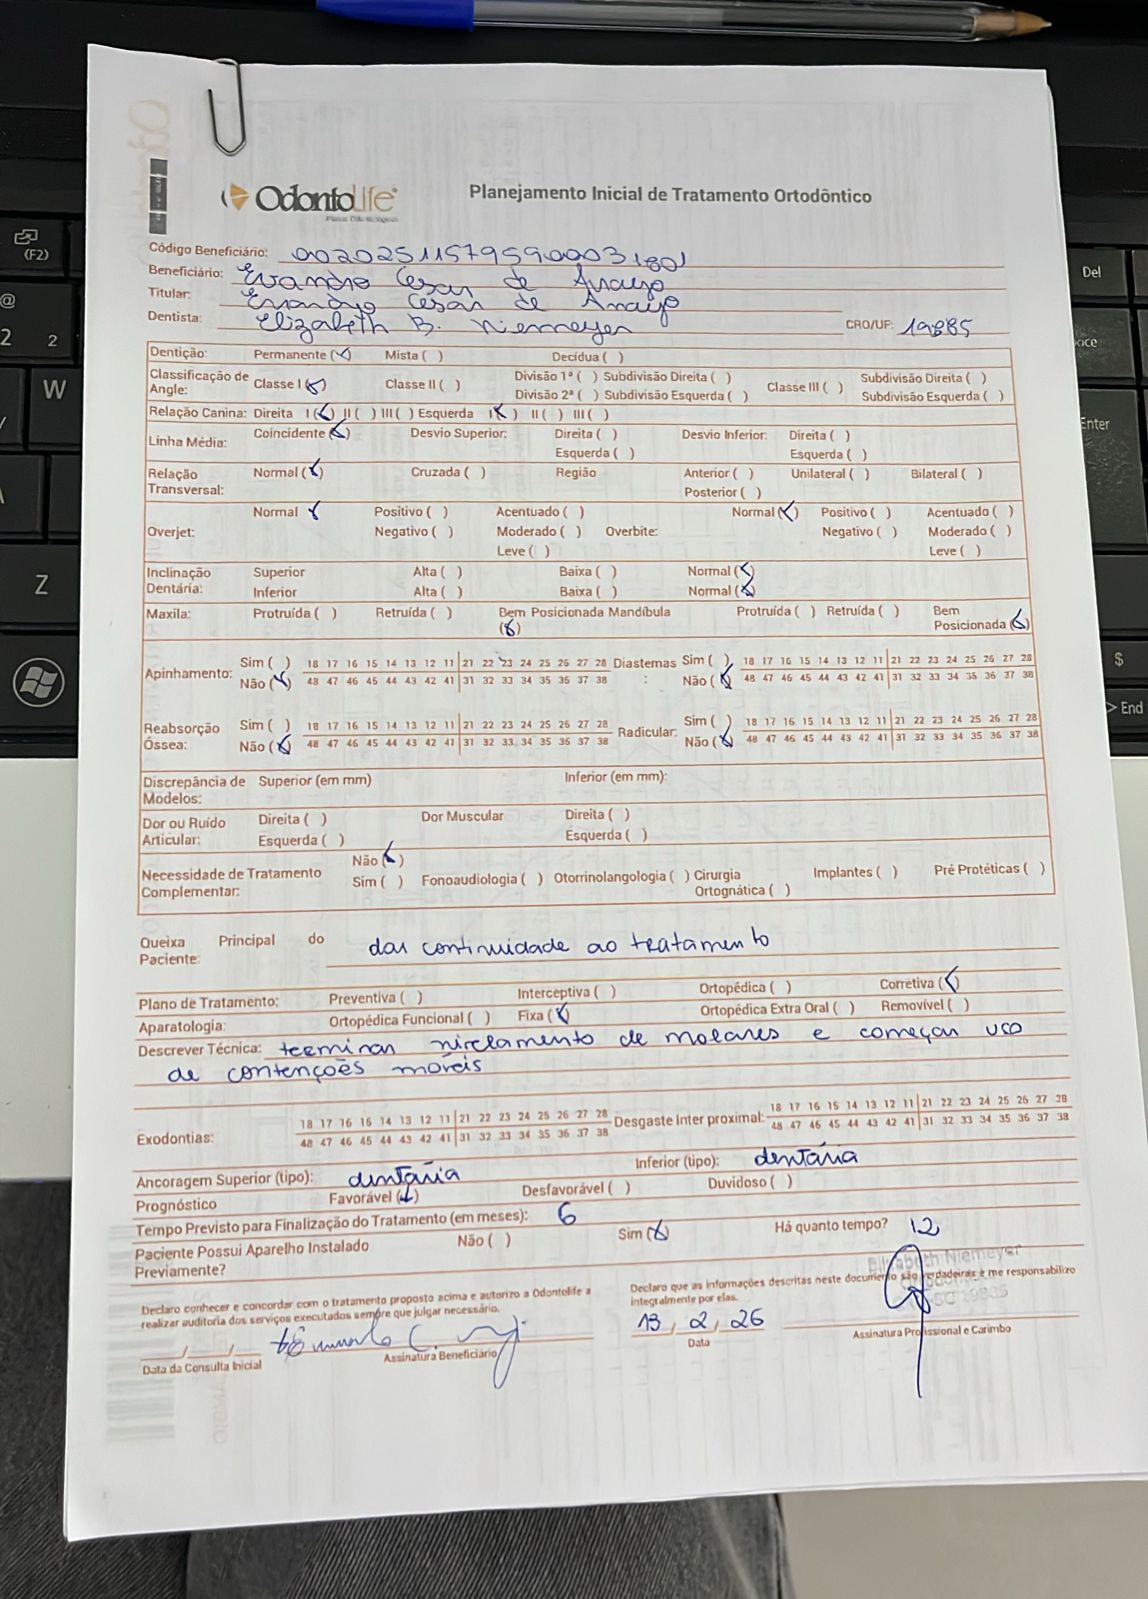 OdontoLife
Planejamento Inicial de Tratamento Ortodôntico
Código Beneficiário: 00202511579590003 1801
Beneficiário: Evandro Cesar de Araujo
Titular: Evandro Cesar de Araujo
Dentista: Elizabeth B. Niemeyer CRO/UF: 19885
Dentição: Permanente (x) Mista ( ) Decídua ( )
Classificação de Angle: Classe I (x) Classe II ( ) Divisão 1ª ( ) Subdivisão Direita ( ) Classe III ( ) Subdivisão Direita ( )
Divisão 2ª ( ) Subdivisão Esquerda ( ) Subdivisão Esquerda ( )
Relação Canina: Direita I (x) II ( ) III ( ) Esquerda I (x) II ( ) III ( )
Linha Média: Coincidente (x) Desvio Superior: Direita ( ) Desvio Inferior: Direita ( )
Esquerda ( ) Esquerda ( )
Relação Transversal: Normal (x) Cruzada ( ) Região Anterior ( ) Unilateral ( ) Bilateral ( )
Posterior ( )
Normal x Positivo ( ) Acentuado ( ) Normal (x) Positivo ( ) Acentuado ( )
Overjet: Negativo ( ) Moderado ( ) Overbite: Negativo ( ) Moderado ( )
Leve ( ) Leve ( )
Inclinação Dentária: Superior Alta ( ) Baixa ( ) Normal (x)
Inferior Alta ( ) Baixa ( ) Normal (x)
Maxila: Protruída ( ) Retruída ( ) Bem Posicionada (x) Mandíbula Protruída ( ) Retruída ( ) Bem Posicionada (x)
Apinhamento: Sim ( ) 18 17 16 15 14 13 12 11 21 22 23 24 25 26 27 28 Diastemas: Sim ( ) 18 17 16 15 14 13 12 11 21 22 23 24 25 26 27 28
Não (x) 48 47 46 45 44 43 42 41 31 32 33 34 35 36 37 38 Não (x) 48 47 46 45 44 43 42 41 31 32 33 34 35 36 37 38
Reabsorção Óssea: Sim ( ) 18 17 16 15 14 13 12 11 21 22 23 24 25 26 27 28 Radicular: Sim ( ) 18 17 16 15 14 13 12 11 21 22 23 24 25 26 27 28
Não (x) 48 47 46 45 44 43 42 41 31 32 33 34 35 36 37 38 Não (x) 48 47 46 45 44 43 42 41 31 32 33 34 35 36 37 38
Discrepância de Modelos: Superior (em mm) Inferior (em mm):
Dor ou Ruído Articular: Direita ( ) Dor Muscular Direita ( )
Esquerda ( ) Esquerda ( )
Necessidade de Tratamento Complementar: Não (x)
Sim ( ) Fonoaudiologia ( ) Otorrinolangologia ( ) Cirurgia Ortognática ( ) Implantes ( ) Pré Protéticas ( )
Queixa Principal do Paciente: dar continuidade ao tratamento
Plano de Tratamento: Preventiva ( ) Interceptiva ( ) Ortopédica ( ) Corretiva (x)
Aparatologia: Ortopédica Funcional ( ) Fixa (x) Ortopédica Extra Oral ( ) Removível ( )
Descrever Técnica: terminar nivelamento de molares e começar uso
de contenções móveis
Exodontias: 18 17 16 16 14 13 12 11 21 22 23 24 25 26 27 28 Desgaste Inter proximal: 18 17 16 15 14 13 12 11 21 22 23 24 25 26 27 28
48 47 46 45 44 43 42 41 31 32 33 34 35 36 37 38 48 47 46 45 44 43 42 41 31 32 33 34 35 36 37 38
Ancoragem Superior (tipo): dentária Inferior (tipo): dentária
Prognóstico Favorável (x) Desfavorável ( ) Duvidoso ( )
Tempo Previsto para Finalização do Tratamento (em meses): 6
Paciente Possui Aparelho Instalado Previamente? Não ( ) Sim (x) Há quanto tempo? 12
Elizabeth Niemeyer
Declaro conhecer e concordar com o tratamento proposto acima e autorizo a Odontolife a
realizar auditoria dos serviços executados sempre que julgar necessário.
Declaro que as informações descritas neste documento são verdadeiras e me responsabilizo
integralmente por elas.
13, 2, 26
Data da Consulta Inicial Assinatura Beneficiário Data Assinatura Profissional e Carimbo
(F2)
@
2 2
W
Z
Del
Enter
$
End